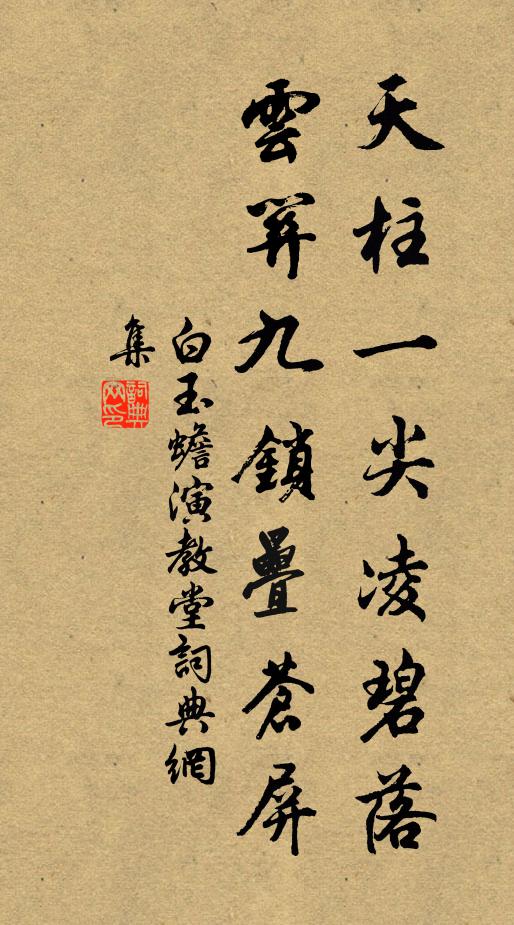 天柱一尖凌碧落
雲開九鎖疊蒼屏
白玉蟾演教堂詞典網
集
詞典網印